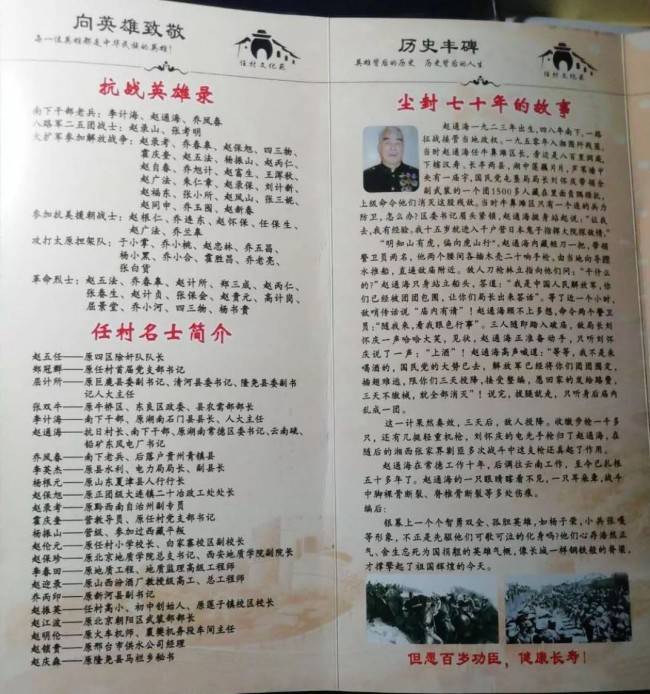 向英雄致敬
每一位英雄都是中华民族的英雄!
任村文化苑
抗战英雄录
南下干部老兵：李计海、赵通海、乔凤春
八路军二五团战士：赵录山、张考明
大扩军参加解放战争：赵录考、乔春皋、赵保旭、四三物、
霍庆奎、赵五法、杨振山、赵丙仁、
赵自春、乔旭计、赵富生、王浑秋、
赵广法、朱仁章、赵录保、刘计新、
赵福东、张小所、赵凤山、张三妮、
赵同申、乔玉囤、赵新春
参加抗美援朝战士：赵根仁、乔连东、赵怀保、任保生、
赵广法、乔兰皋
攻打太原担架队：于小掌、乔小桃、赵忠林、乔五昌、
杨小黑、乔小合、霍胜昌、乔老亮、
张白货
革命烈士：赵五法、乔春皋、赵计所、郑三成、赵丙仁、
张春生、赵计贞、张保金、赵贵元、高计岗、
屈景堂、乔小河、四三物、杨书贵
任村名士简介
赵五任——原四区除奸队队长
郑冠群——原任村首届党支部书记
屈计所——原巨鹿县委副书记、清河县委书记、隆尧县委副书
记人大主任
张双牛——原牛桥区、东良区政委、县农需部部长
李计海——南下干部、原湖南石门县县长、人大主任
赵通海——抗日村长、南下干部、原湖南常德区委书记、云南硫、
铅矿东风电厂书记
乔凤春——南下老兵、后落户贵州青镇县
李英杰——原县水利、电力局局长、副县长
杨根元——原山东夏津县人行行长
赵保旭——原正团级大连镇二十冶政工处处长
赵录考——原黔西南自治州副专员
霍庆奎——营教导员、原任村党支部书记
杨振山——营级、参加过西藏平叛
赵伦元——原任村小学校长、白家寨校区副校长
赵保珍——原北京地质学院总支书记、西安地质学院副院长
李春田——原地质工程、地质监理高级工程师
赵迎录——原山西汾酒厂教授级高工、总工程师
乔丙印——原新河县副书记
赵振英——任村高小、初中创始人、原莲子镇校区校长
赵江波——原北京朝阳区武装部部长
赵明伦——原火车机师、襄樊机务段车间主任
赵锁贵——原邢台市供水公司经理
赵庆森——原隆尧县马栏乡秘书
历史丰碑
英雄背后的历史 历史背后的人生
任村文化苑
尘封七十年的故事
赵通海一九二三年出生,四八年南下,一路
征战接管当地政权,一九五零年入湘围歼残匪。
当时赵通海任牛鼻滩区长,旁边是八百里洞庭,
下辖汉寿、长亭两县,湖中莲藕片片,芦苇塘中
央有一座宇,国民党龙垄局局长刘怀庆带领全
副武装的一个团1500多人藏在里面负隅顽抗,
上级命令他们消灭这股残敌。当时牛鼻滩区只有一个连的兵力
防卫,怎么办?区委书记眉头紧锁,赵通海挺身站起说:"让我
去,我有经验,我十五岁就进入千户营日本鬼子指挥大院探敌情。"
"明知山有虎,偏向虎山行"。赵通海内藏短刀一把,带领
警卫员两名,他两个腰间各插水壳二十响手枪,由当地向导蹚
水推船,直通敌庙附近。敌人刀枪林立指向他们问:"干什么
的?"赵通海只身站立船头,答道:"我是中国人民解放军,你
们已经被团团包围,让你们局长出来答话"。等了近一个小时,
敌哨传话说"庙内有请"!赵通海顾不上多想,命令两个警卫
员:"随我来,看我眼色行事"。三人随即踏入破庙,敌局长刘
怀庆一声哈哈大笑,见状,赵通海三兵准备动手,只听刘怀
庆说了一声:"上酒"!赵通海高声喊道:"等等,我不是来
喝酒的,国民党的大势已去,解放军已经将你们团团围定,
插翅难逃,限你们三天投降,接受整编,愿回家的发给路费,
三天不缴械,就全部消灭"!说完,拔腿就走,只听身后庙内
乱成一团。
这一计果然奏效,三天后,敌人投降。收缴步枪一千多
只,还有几挺轻重机枪。刘怀庆的电光手枪归了赵通海,在
随后的湘西张家界剿匪多次战斗中这支枪还真起了作用。
赵通海在常德工作十年,后调往云南工作,至今已扎根
五十多年了。赵通海的一只眼睛瞎看不见,一只耳朵聋,战斗
中脚裸骨断裂、脊椎骨断裂等多处伤痕。
编后:
银幕上一个个智勇双全、孤胆英雄,如杨子荣、小兵张嘎
等形象,不正是先驱他们可歌可泣的化身吗?他们心存浩然正
气、舍生忘死为国捐躯的英雄气概,像长城一样钢铁般的脊梁,
才撑擎起了祖国辉煌的今天。
但愿百岁功臣,健康长寿!